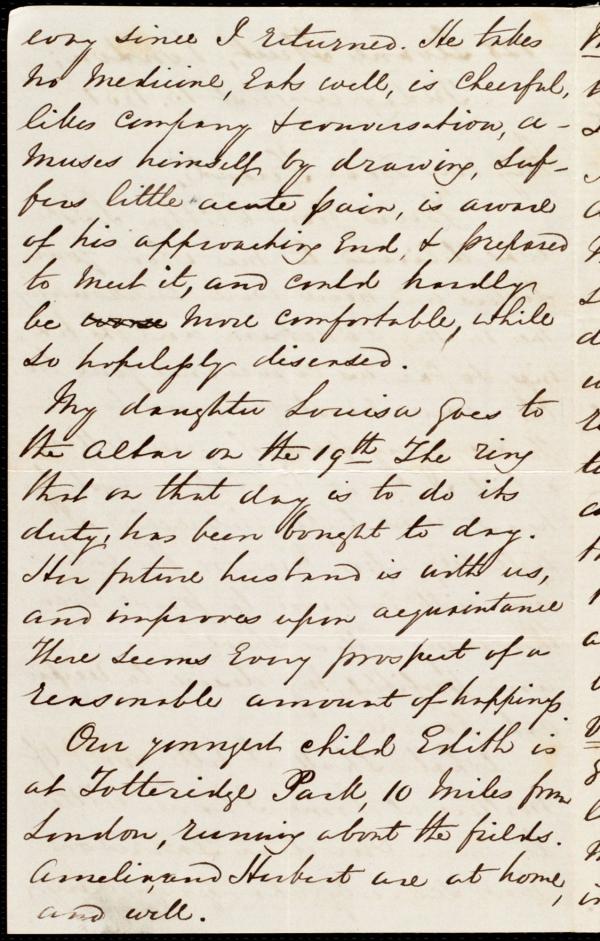 ever since I returned. He takes
no medicine, Eats well, is cheerful,
likes company & conversation, a-
muses himself by drawing, suf-
fers little acute pain, is aware
of his approaching End, & prepared
to meet it, and could hardly
be worse more comfortable, while
so hopelessly diseased.
My daughter Louisa goes to
the altar on the 19th The ring
that on that day is to do its
duty, has been bought to day.
Her future husband is with us,
and improves upon acquaintance
There seems Every prospect of a
reasonable amount of happiness.
Our youngest child Edith is
at Totteridge Park, 10 miles from
London, running about the fields.
Amelia, and Herbert are at home,
and well.